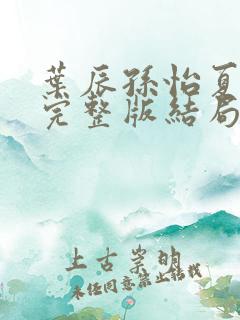 葉辰孫怡夏
完整版結局
上古崇明
未经同意禁止转载